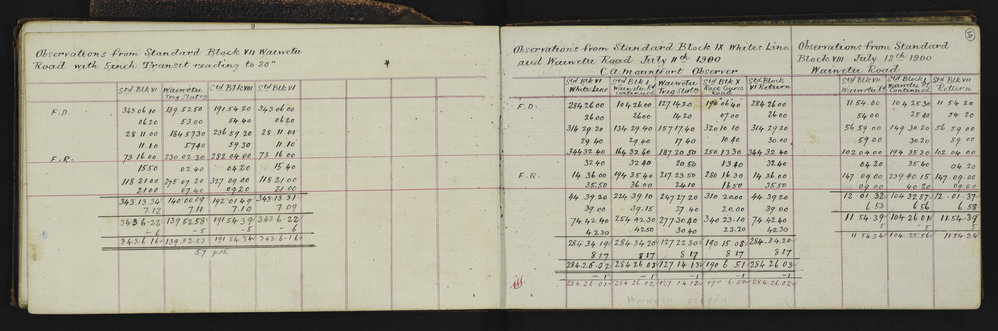 Observations from Standard Block VII Waiwetu
Road with 5 inch Transit reading to 20"
Std Blk VI Waiwetu Trig Station Std Blk VIII Std Blk VI
F.D. 343 06 10 139 52 50 191 54 20 343 06 00
06 20 53.00 54 40 06 20
28 11 00 184 57 30 236 59 20 28 11 00
11 10 57 40 59 30 11 10
F.R. 73 16 00 230 02 30 282 04 00 73 16 00
15 50 02 40 04 20 15 40
118 21 00 275 07 20 327 09 00 118 21 00
21 00 07 40 09 20 21 00
343 13 34 140 00 09 192 01 49 343 13 31
7.12 7.11 7.10 7 09
343 6.22 139 52.58 191 54.39 343 6.22
- 6 - 5 - 5 - 6
343.6.16 139.52.53 191.54.34 343.6.16
Observations from Standard Block IX Whites Line
and Waiwetu Road July 11th 1900
C.A. Mountfort Observer
Std Blk VI White Line Std Blk I Waiwetu Rd Continued Waiwetu Trig Statn Std Blk X Race Course Road Std Block VI Return
F.D. 284 26 00 104 26 00 127 14 20 190 06 40 284 26 00
26 00 26 00 14 20 07 00 26 00
314 29 20 134 29 40 157 17 40 320 10 10 314 29 20
29 40 29 40 17 40 10 40 30 00
344 32 40 164 32 60 187 20 50 250 13 30 344 32 40
32 40 32 40 20 50 13 40 32 40
F.R. 14 36 00 194 35 40 217 23 50 280 16 30 14 36 00
35 50 36 00 24 10 16 50 35 50
44 39 20 224 39 10 247 27 20 310 20 00 44 39 20
39 00 39 15 27 40 20.00 39 00
74 42 40 254 42 30 277 30 80 340 23 10 74 42 40
42 30 42 50 30 40 23.20 42.30
284 34 19 284 34 20 127 22 30 190 15 08 284.34.20
8 17 8 17 8 17 8 17 8 17
284.26.02 284 26 03 127 14 13 190 6 51 284 26 03
-1 -1 -1 -1 -1
284.26.01 284 26 02 127 14 12 190 6.50 284.26.02
Waiwetu origin
5
Observations from Standard
Block VIII July 12th 1900
Waiwetu Road
Std Blk VII Waiwetu Rd Std Block I Waiwetu Rd Continued Std Blk VII Return
11 54.00 104 25 30 11 54 20
54.00 25 40 54 20
56 59 00 149 30 20 56 59 00
59 00 30 20 59 00
102 04 00 194 35 20 102 04 00
04 20 35 40 04.20
147 09 00 239 40 15 147 09 00
09 00 40 20 09 00
12 01.32 104 32 57 12.01.37
6 53 6 56 6 58
11 54.39 104 26 01 11.54.39
5 5 5
11 54.34 104.25.56 11.54.34